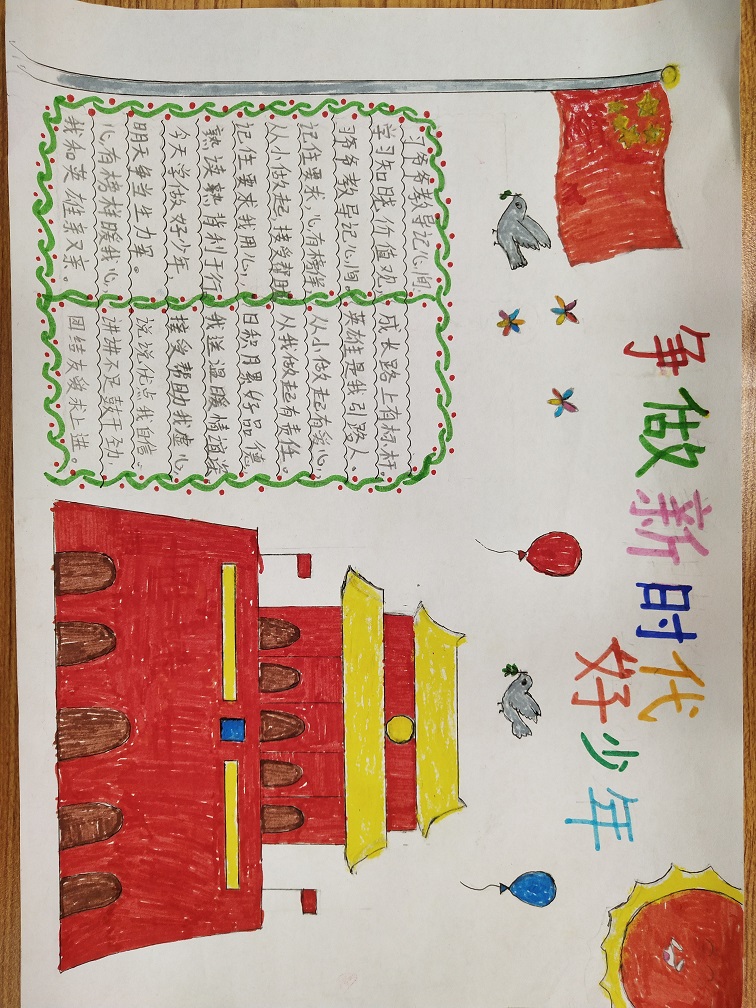 争做新时代
好少年
习爷爷教导记心间,
学习知晓价值观,
习爷爷教导记心间。
记住要求心有榜样,
从小做起接受帮助
记住要求我用心,
熟读熟背利于行
今天学做好少年
明天争当生力军。
心有榜样暖我心,
我和英雄亲又亲。
成长路上有标杆。
英雄是我引路人、
从小做起有爱心,
从我做起有责任。
日积月累好品德,
我送温暖情谊深
接受帮助我虚心,
说说优点我自信。
讲讲不足鼓干劲,
团结友爱求上进。